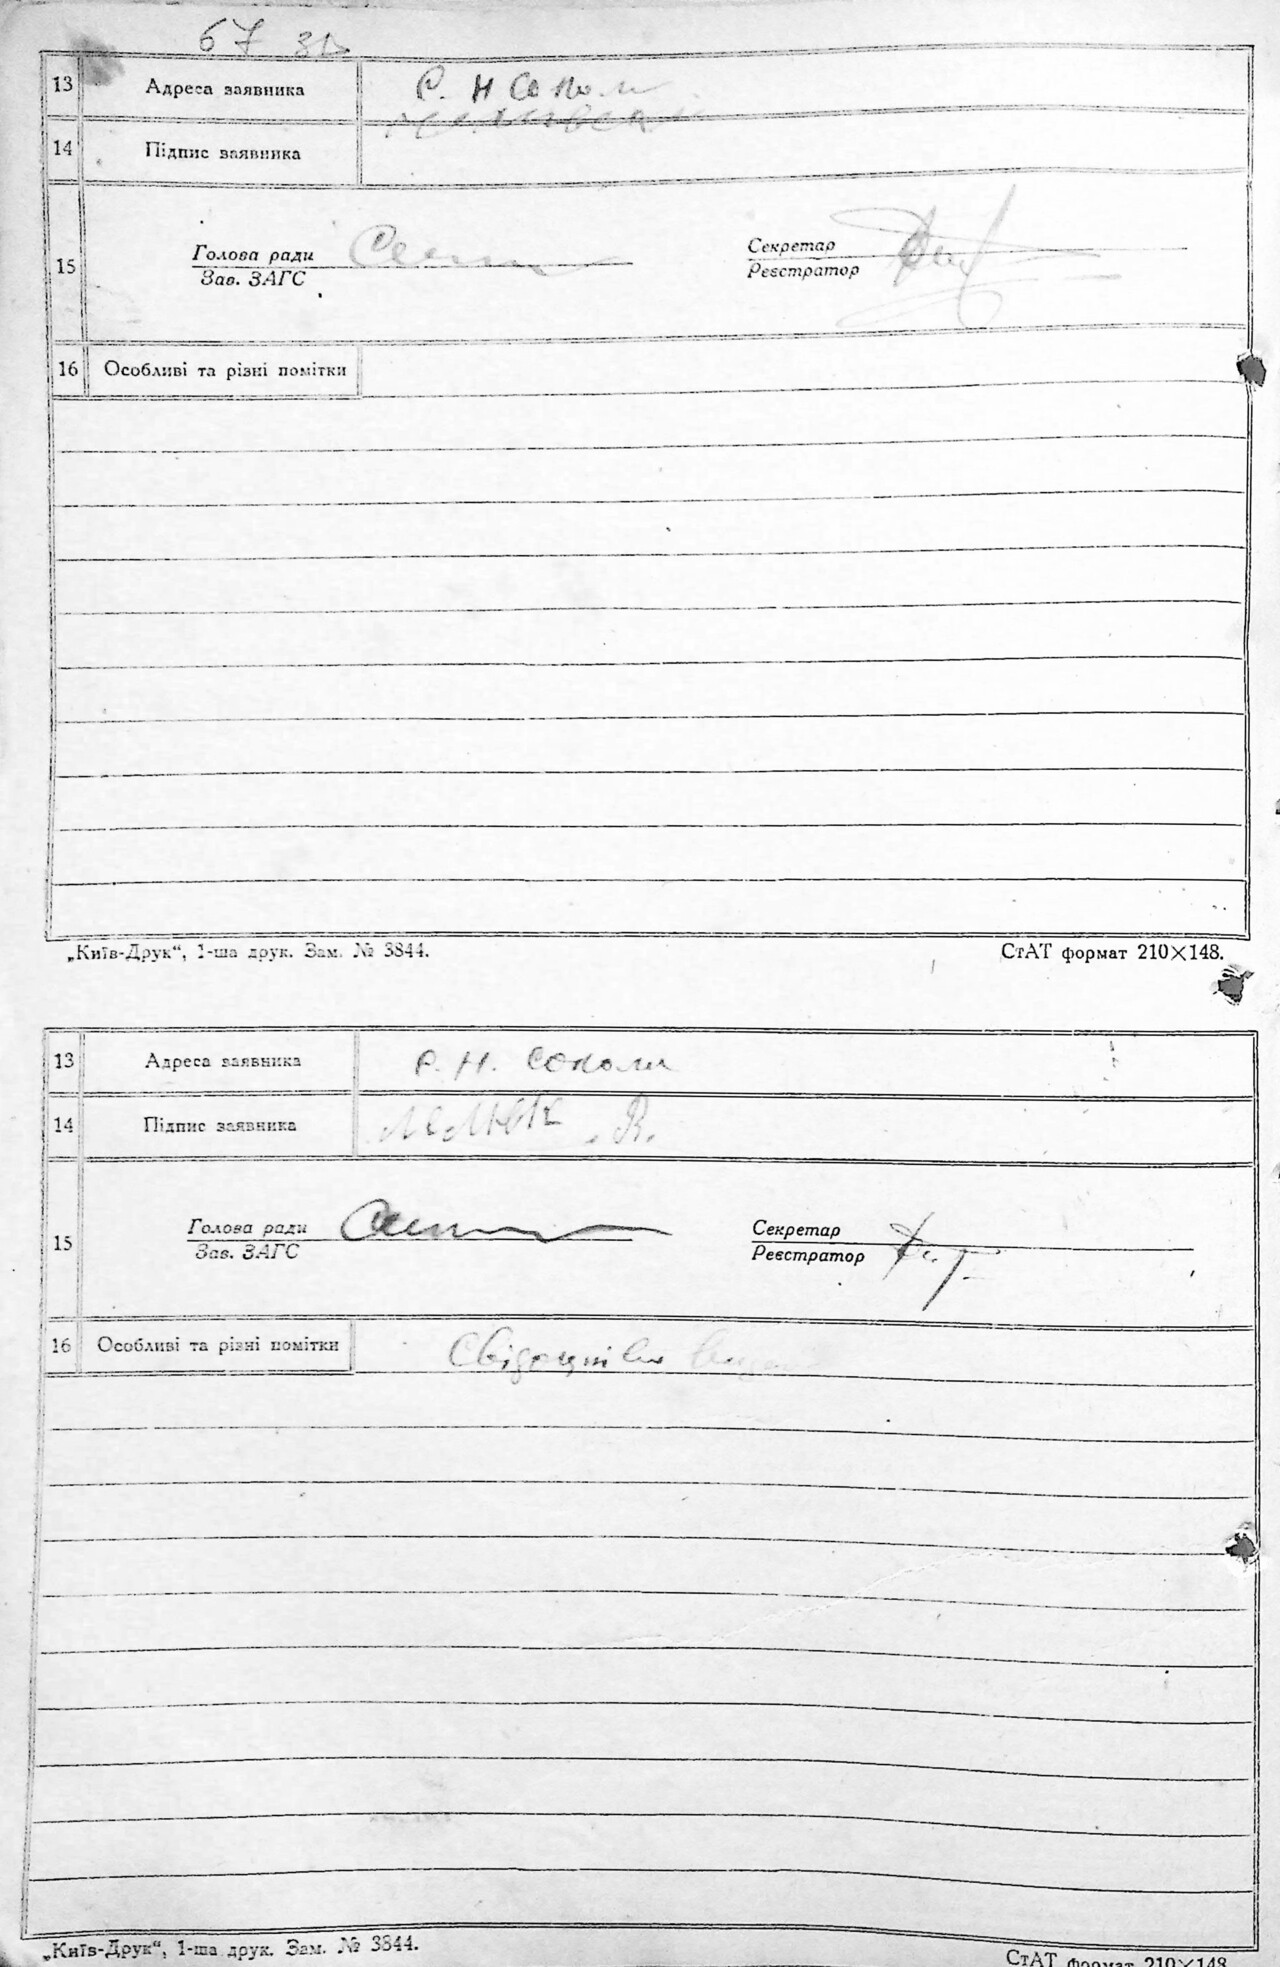 67 зв
13 Адреса заявника с. Н Соколи
14 Підпис заявника
15 Голова ради Секретар
Зав. ЗАГС Реєстратор
16 Особливі та різні помітки
„Київ-Друк“, 1-ша друк. Зам. № 3844. СтАТ формат 210×148.
13 Адреса заявника с. Н. Соколи
14 Підпис заявника
15 Голова ради Секретар
Зав. ЗАГС Реєстратор
16 Особливі та різні помітки
„Київ-Друк“, 1-ша друк. Зам. № 3844.
СтАТ формат 210×148